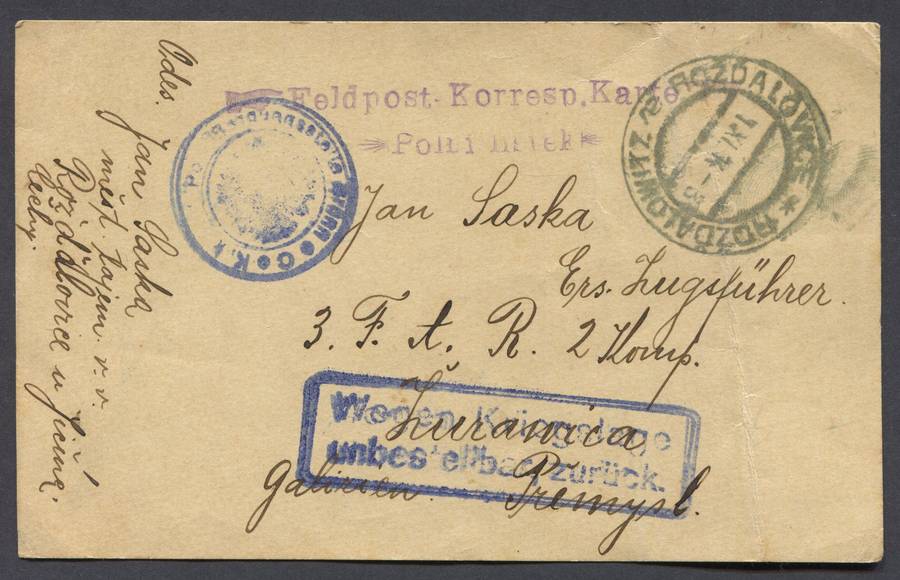 Feldpost-Korresp. Karte
Polní lístek
ROŽĎALOVICE * ROŽĎALOWITZ
1 XI 14
Jan Saska
Ers. Zugsführer.
3. F. A. R. 2 Komp.
Żurawica
Galizien Přemysl.
Wegen Kriegslage
unbestellbar zurück.
Odes.
Jan Saska
měst. tajem. v. v.
Rožďalovice u Jičína.
Čechy.